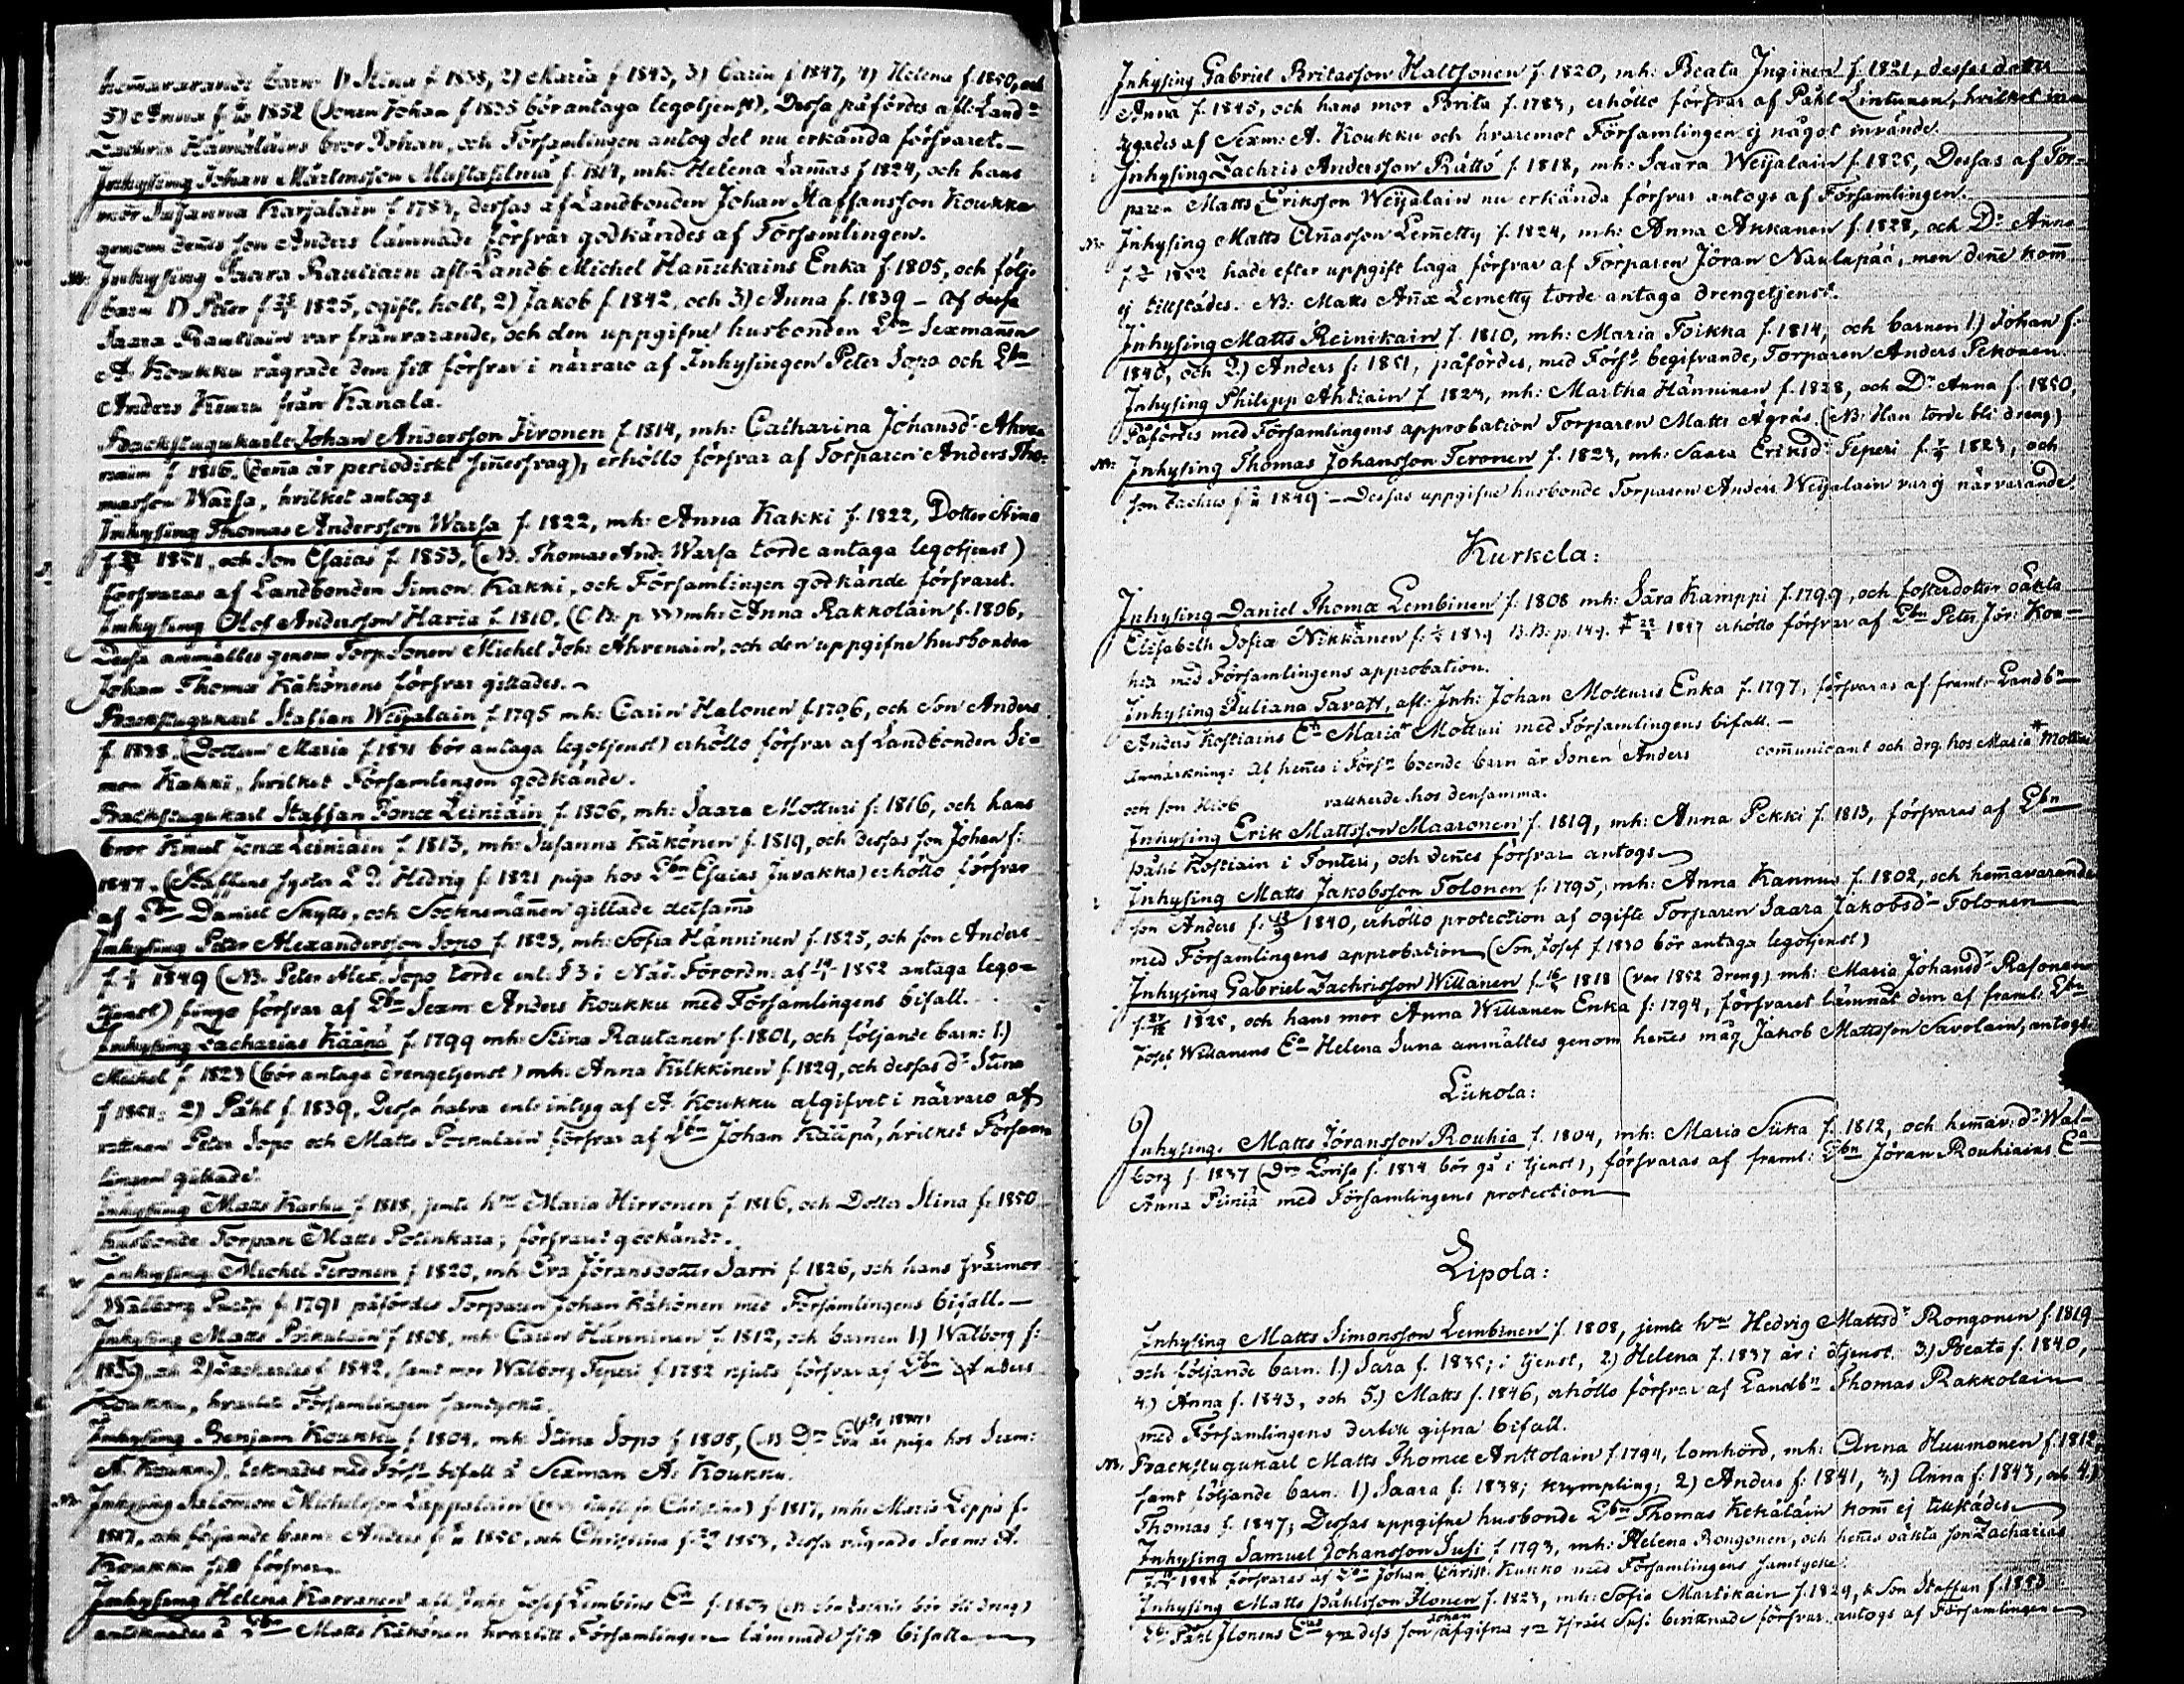 hemmavarande barn 1) Stina f 1838, 2) Maria f 1843, 3) Carin f 1847, 4) Helena f. 1850, och
5) Anna f. 1852 (Sonen Johan f 1835 bör antaga legotjenst). Dessa påfördes afl: Land-
Zachris Hämäläins bror Johan, och Församlingen antog det nu erkända försvaret.—
Inhysing Johan Mårtensson Mustasilmä f. 1819, mh: Helena Lamas f 1824, och hans
mor Susanna Karjalain f. 1783, dessas af Landbonden Johan Staffansson Koukku
genom dennes son Anders lämnade försvar godkändes af Församlingen.
NB: Inhysing Saara Rautiain afl: Landb Michel Hannukains Enka f. 1805, och följ.
barn 1) Peter f 1825, ogift, halt, 2) Jakob f. 1842, och 3) Anna f. 1839 — af dessa
Saara Rautiain var frånvarande, och den uppgifne husbonden Lbn Sexmannen
A. Koukku vägrade dem sitt försvar i närvaro af Inhysingen Peter Sopo och Lbn
Anders från Kanala.
Backstugukarle Johan Andersson Jivonen f. 1814, mh: Catharina Johansdr Ahve-
nain f 1816. (denna är periodiskt sinnessvag), erhöllo försvar af Torparen Anders Tho-
masson Warsa, hvilket antogs
Inhysing Thomas Andersson Warsa f. 1822, mh: Anna Kakki f. 1822, Dotter Stina
f. 1851, och Son Esaias f. 1853, (NB. Thomas And: Warsa torde antaga legotjenst)
försvaras af Landbonden Simon Kakki, och Församlingen godkände försvaret.
Inhysing Olof Andersson Haria f. 1810, mh: Anna Rakkoläin f. 1806,
Dessa anmältes genom Torp Sonen Michel Joh: Ahvenain, och den uppgifne husbonden
Johan Thomæ Kähönens försvar gillades.—
Backstugukarl Staffan Weijalain f. 1795 mh: Carin Halonen f. 1796, och Son Anders
f. 1838. (Dottern Maria f. 1831 bör antaga legotjenst) erhöllo försvar af Landbonden Si-
mon Kakki, hvilket Församlingen godkände.
Backstugukarl Staffan Jonæ Leiniäin f. 1806, mh: Saara Motturi f: 1816, och hans
bror Knut Jonæ Leiniäin f. 1813, mh: Susanna Käkönen f. 1819, och dessas son Johan f:
1847. (Staffans syster Hedvig f: 1821 piga hos Lbn Esaias Juvakka) erhöllo försvar
af Lbn Daniel Skytte, och Socknemännen gillade detsamma
Inhysing Peter Alexandersson Sopo f. 1823, mh: Sofia Hänninen f. 1825, och son Anders
f. 1849 (NB. Peter Alex. Sopo torde enl: § 3 i Nåd. Förordn: af 1852 antaga lego-
tjenst) fingo försvar af Lbn Sexm: Anders Koukku med Församlingens bifall.
Inhysing Zacharias Kääpä f. 1799 mh: Stina Rautanen f. 1801, och följande barn: 1.)
Michel f. 1823 (bör antaga drengetjenst) mh: Anna Kilkkinen f. 1829, och dessas dr Stina
f 1851; 2) Påhl f. 1839. Dessa halva enl: intyg af A. Koukku afgifvet i närvaro af
Peter Sopo och Matts Poikulain försvar af Lbn Johan Kääpä, hvilket Försam-
lingen gillade.
Inhysing Matts Karhu f 1818, jemte hru Maria Hirvonen f. 1816, och Dotter Stina f: 1850
husbonde Torpar Matts Polinkara; försvaret godkänd.
Inhysing Michel Teronen f 1820, mh: Eva Jöransdotter Sarri f. 1826, och hans svärmor
Walborg f. 1791 påfördes Torparen Johan Kähönen med Församlingens bifall.—
Inhysing Matts Poikulain f 1808, mh: Carin Hänninen f. 1812, och barnen 1.) Walborg f:
och 2) Zacharias f. 1842, samt mor Walborg Teperi f. 1782 njuta försvar af Lbn Anders
Koukku, hvartill Församlingen samtyckte.
Inhysing Benjam Koukku f 1804, mh: Stina Sopo f 1805, (NB Dr Eva är piga hos Sexm:
A. Koukku), tecknades med Förs: bifall å Sexman A: Koukku.
NB: Inhysing Salomon Michelsson Lappalain f. 1817, mh: Maria Leppä f.
1817, och följande barn: Anders f 1850, och Christina f. 1853, dessa vägrade Sexm: A.
Koukku sitt försvar.
Inhysing Helena Karvanen afl: Inh: Josef Lembins Ea f. 1803
antecknades å Lbn Matts Kähönen hvartill Församlingen lämnade sitt bifall
Inhysing Gabriel Britasson Haltsonen f. 1820, mh: Beata Inginen f. 1821, dessas dotter
Anna f. 1845, och hans mor Brita f. 1783, erhöllo försvar af Påhl Lintunen, hvilket in-
tygades af Sexm: A. Koukku och hvaremot Församlingen ej något invände.
Inhysing Zachris Andersson Rättö f. 1818, mh: Saara Weijalain f. 1825, Dessas af Tor-
paren Matts Eriksson Weijalain nu erkända försvar antogs af Församlingen.
NB: Inhysing Matts Annasson Lemetty f. 1824, mh: Anna Akkanen f. 1828, och Dr Anna
f. 1852 hade efter uppgift laga försvar af Torparen Jöran Naulapää, men denne kom
ej tillstädes. NB: Matts Annæ Lemetty torde antaga drengetjenst.
Inhysing Matts Reinikain f. 1810, mh: Maria Toikka f. 1814, och barnen 1.) Johan f:
1840, och 2.) Anders f: 1851, påfördes, med Förss begifvande, Torparen Anders Pekonen.
Inhysing Philipp Ahtiain f. 1824, mh: Martha Hänninen f. 1828, och Dr Anna f. 1850,
Påfördes med Församlingens approbation Torparen Matts Ägräs. (NB: Han torde bli dreng)
NB: Inhysing Thomas Johansson Teronen f. 1823, mh: Saara Eriksd: Teperi f. 1823, och
son Zachris f 1849 — Dessas uppgifne husbonde Torparen Anders Weijalain var ej närvarande
Kurkela:
Inhysing Daniel Thomæ Lembinen f: 1808 mh: Sara Kamppi f. 1799, och fosterdotter oäkta
Elisabeth Sofiæ Nikkanen f: 1839 B.B: p. 149. 1847 erhöllo försvar af Lbn Peter Jör: Kou-
hia med Församlingens approbation.
Inhysing Juliana Tavast, afl: Inh: Johan Motturis Enka f. 1797, försvaras af framl: Landbn
Anders Kostiains Ea Maria* Motturi med Församlingens bifall.—
Anmärkning: Af hennes i Försn boende barn är Sonen Anders communicant och drg. hos Maria* Motturi
och son Hiob vallherde hos densamma.
Inhysing Erik Mattsson Maaronen f. 1819, mh: Anna Pekki f. 1813, försvaras af Lbn
Påhl Kostiain i Tonteri, och dennes försvar antogs
Inhysing Matts Jakobsson Tolonen f. 1795, mh: Anna Kannus f. 1802, och hemmavarande
son Anders f. 1840, erhöllo protection af ogifte Torparen Saara Jakobsdr Tolonen
med Församlingens approbation (Son Josef f. 1830 bör antaga legotjenst)
Inhysing Gabriel Zachrisson Willanen f. 1818 (var 1852 dreng) mh: Maria Johansdr Rasonen
f. 1825, och hans mor Anna Willanen Enka f: 1794, försvaret lämnat dem af framl: Lbn
Josef Willanens Ea Helena Suna anmältes genom hennes måg Jakob Mattsson Savolain, antogs.
Liikola:
Inhysing. Matts Jöransson Rouhia f. 1804, mh: Maria Siika f. 1812, och hemmav: dr Wal-
borg f. 1837 (Drn Lovisa f. 1834 bör gå i tjenst), försvaras af framl: Lbn Jöran Rouhiains Ea
Anna Piiniä med Församlingens protection
Lipola:
Inhysing Matts Simonsson Lembinen f. 1808, jemte hru Hedvig Mattsdr Rongonen f. 1819
och följande barn: 1.) Sara f. 1835; i tjenst, 2) Helena f. 1837 är i tjenst 3.) Beata f. 1840,
4.) Anna f. 1843, och 5.) Matts f. 1846, erhöllo försvar af Landbn Thomas Rakkolain
med Församlingens dertill gifna bifall.
NB. Backstugukarl Matts Thomæ Anttolain f. 1794, lomhörd, mh: Anna Huumonen f. 1812
samt följande barn: 1) Saara f: 1838; krympling; 2) Anders f: 1841, 3.) Anna f: 1843, och 4.)
Thomas f. 1847; Dessas uppgifne husbonde Lbn Thomas Kekäläin kom ej tillstädes
Inhysing Samuel Johansson Susi f. 1793, mh: Helena Rongonen, och hennes oäkta son Zacharias
försvaras af Lbn Johan Christ: Kukko med Församlingens samtycke.
Inhysing Matts Påhlsson Ilonen f. 1823, mh: Sofia Martikain f. 1824, & Son Staffan f. 1853
Lb: Påhl Ilonens Eas gm dess son Johan afgifna gm Israel Susi bevittnade försvar antogs af Församlingen